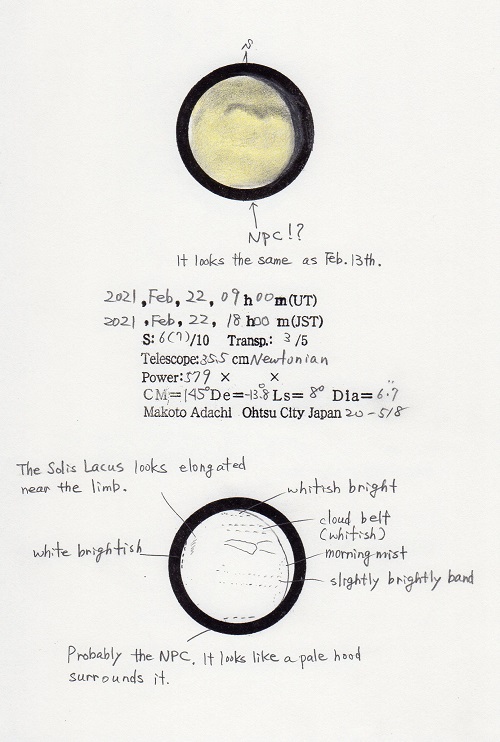 S
NPC!?
It looks the same as Feb. 13th.
2021, Feb, 22, 09 h 00 m (UT)
2021, Feb, 22, 18 h 00 m (JST)
S: 6(7)/10 Transp.: 3/5
Telescope: 35.5 cm Newtonian
Power: 579 × ×
CM=145° De=-13.8° Ls=8° Dia=6.7"
Makoto Adachi Ohtsu City Japan 20-518
The Solis Lacus looks elongated
near the limb.
whitish bright
cloud belt
(whitish)
white brightish
morning mist
slightly brightly band
Probably the NPC. It looks like a pale hood
surrounds it.